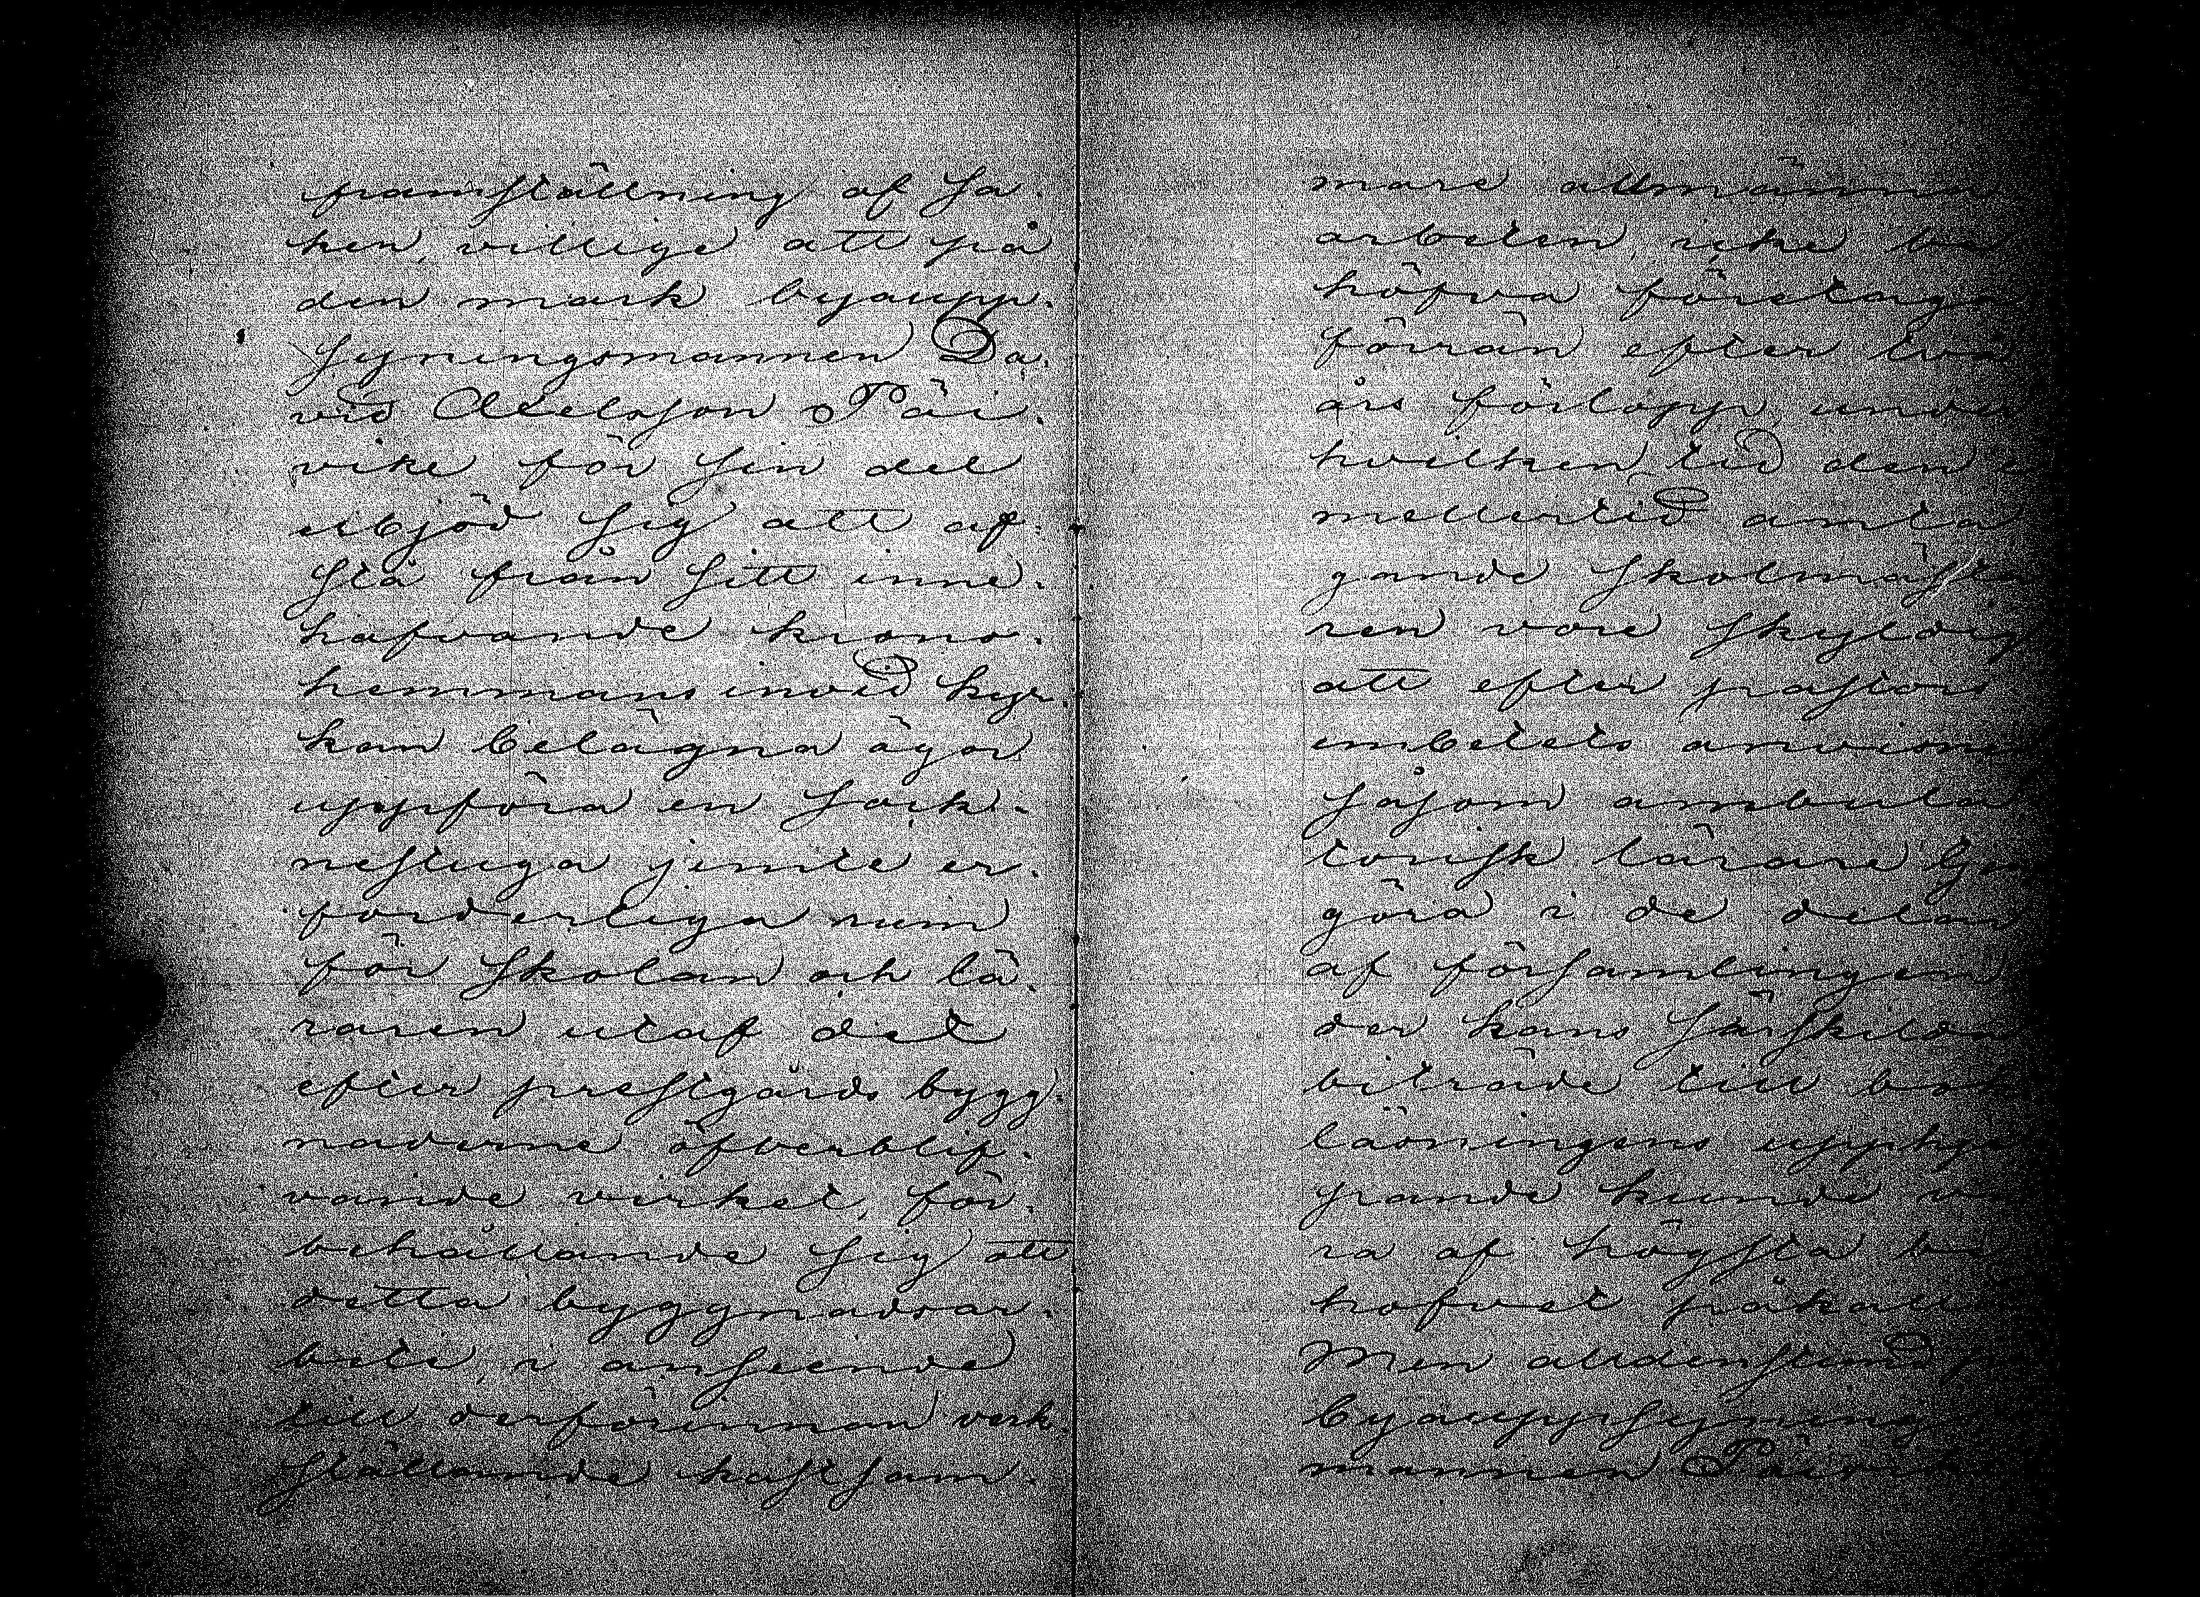 framställning af sa-
ken, villige att på
den mark byaupp-
syningsmannen Da-
vid Abelsson Päi-
vike för sin del
utbjöd sig att af-
stå från sitt inne-
hafvande krono-
hemmans invid kyr-
kan belägna ägor
uppföra en sock-
nestuga jemte er-
forderliga rum
för skolan och lä-
raren utaf det
efter prestgårds bygg-
naderne öfverblif-
vande virket, för-
behållande sig att
detta byggnadsar-
bete, i anseende
till derförinnan verk-
ställande kostsam-
mare allmänna
arbeten, icke be
höfva företaga
förrän efter två
års förlopp, under
hvilken tid den e
mellertid anta
gande skolmäste
ren vore skyldig
att efter pastors
embetets anvisni
såsom ambula
torisk lärare tjen
göra i de delar
af församlingen
der hans särskilda
biträde till bok
läsningens upphje
pande kunde va
ra af högsta be
hofvet påkall
Men alldenstund
byauppsyning
mannen Päivi